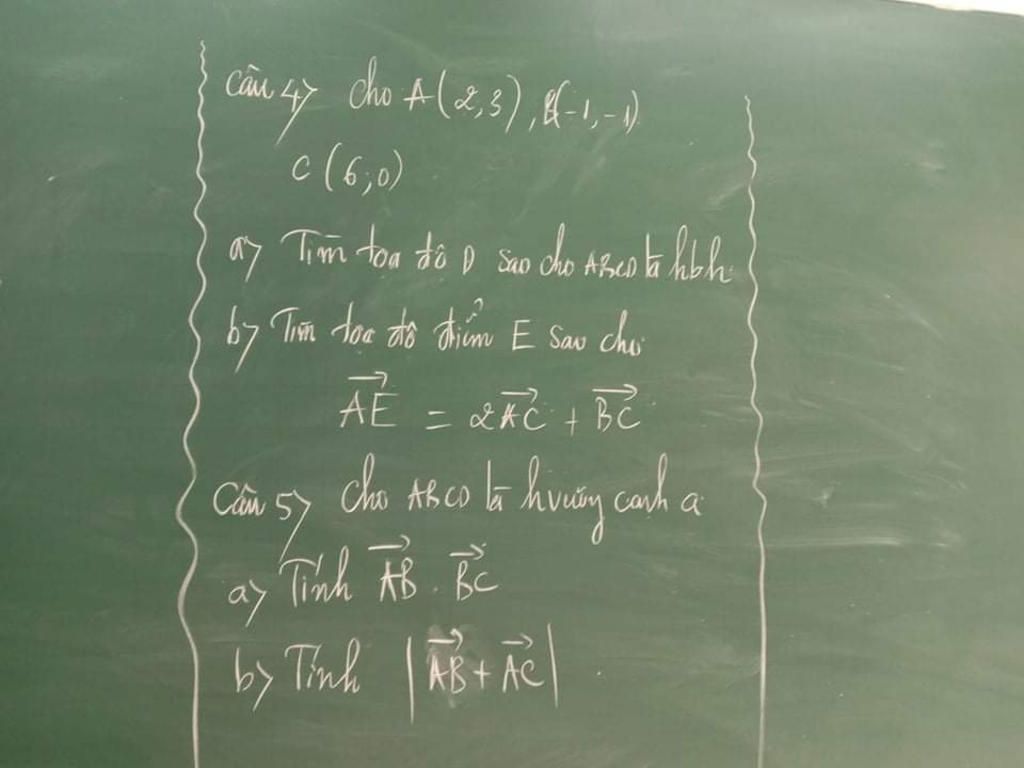 Câu 4> Cho A(2,3), B(-1,-1)
C(6,0)
a> Tìm tọa độ D sao cho ABCD là hbh.
b> Tìm tọa độ điểm E sao cho
\overrightarrow{AE} = 2\overrightarrow{AC} + \overrightarrow{BC}
Câu 5> Cho ABCD là hvuông cạnh a.
a> Tính \overrightarrow{AB} . \overrightarrow{BC}
b> Tính |\overrightarrow{AB} + \overrightarrow{AC}|